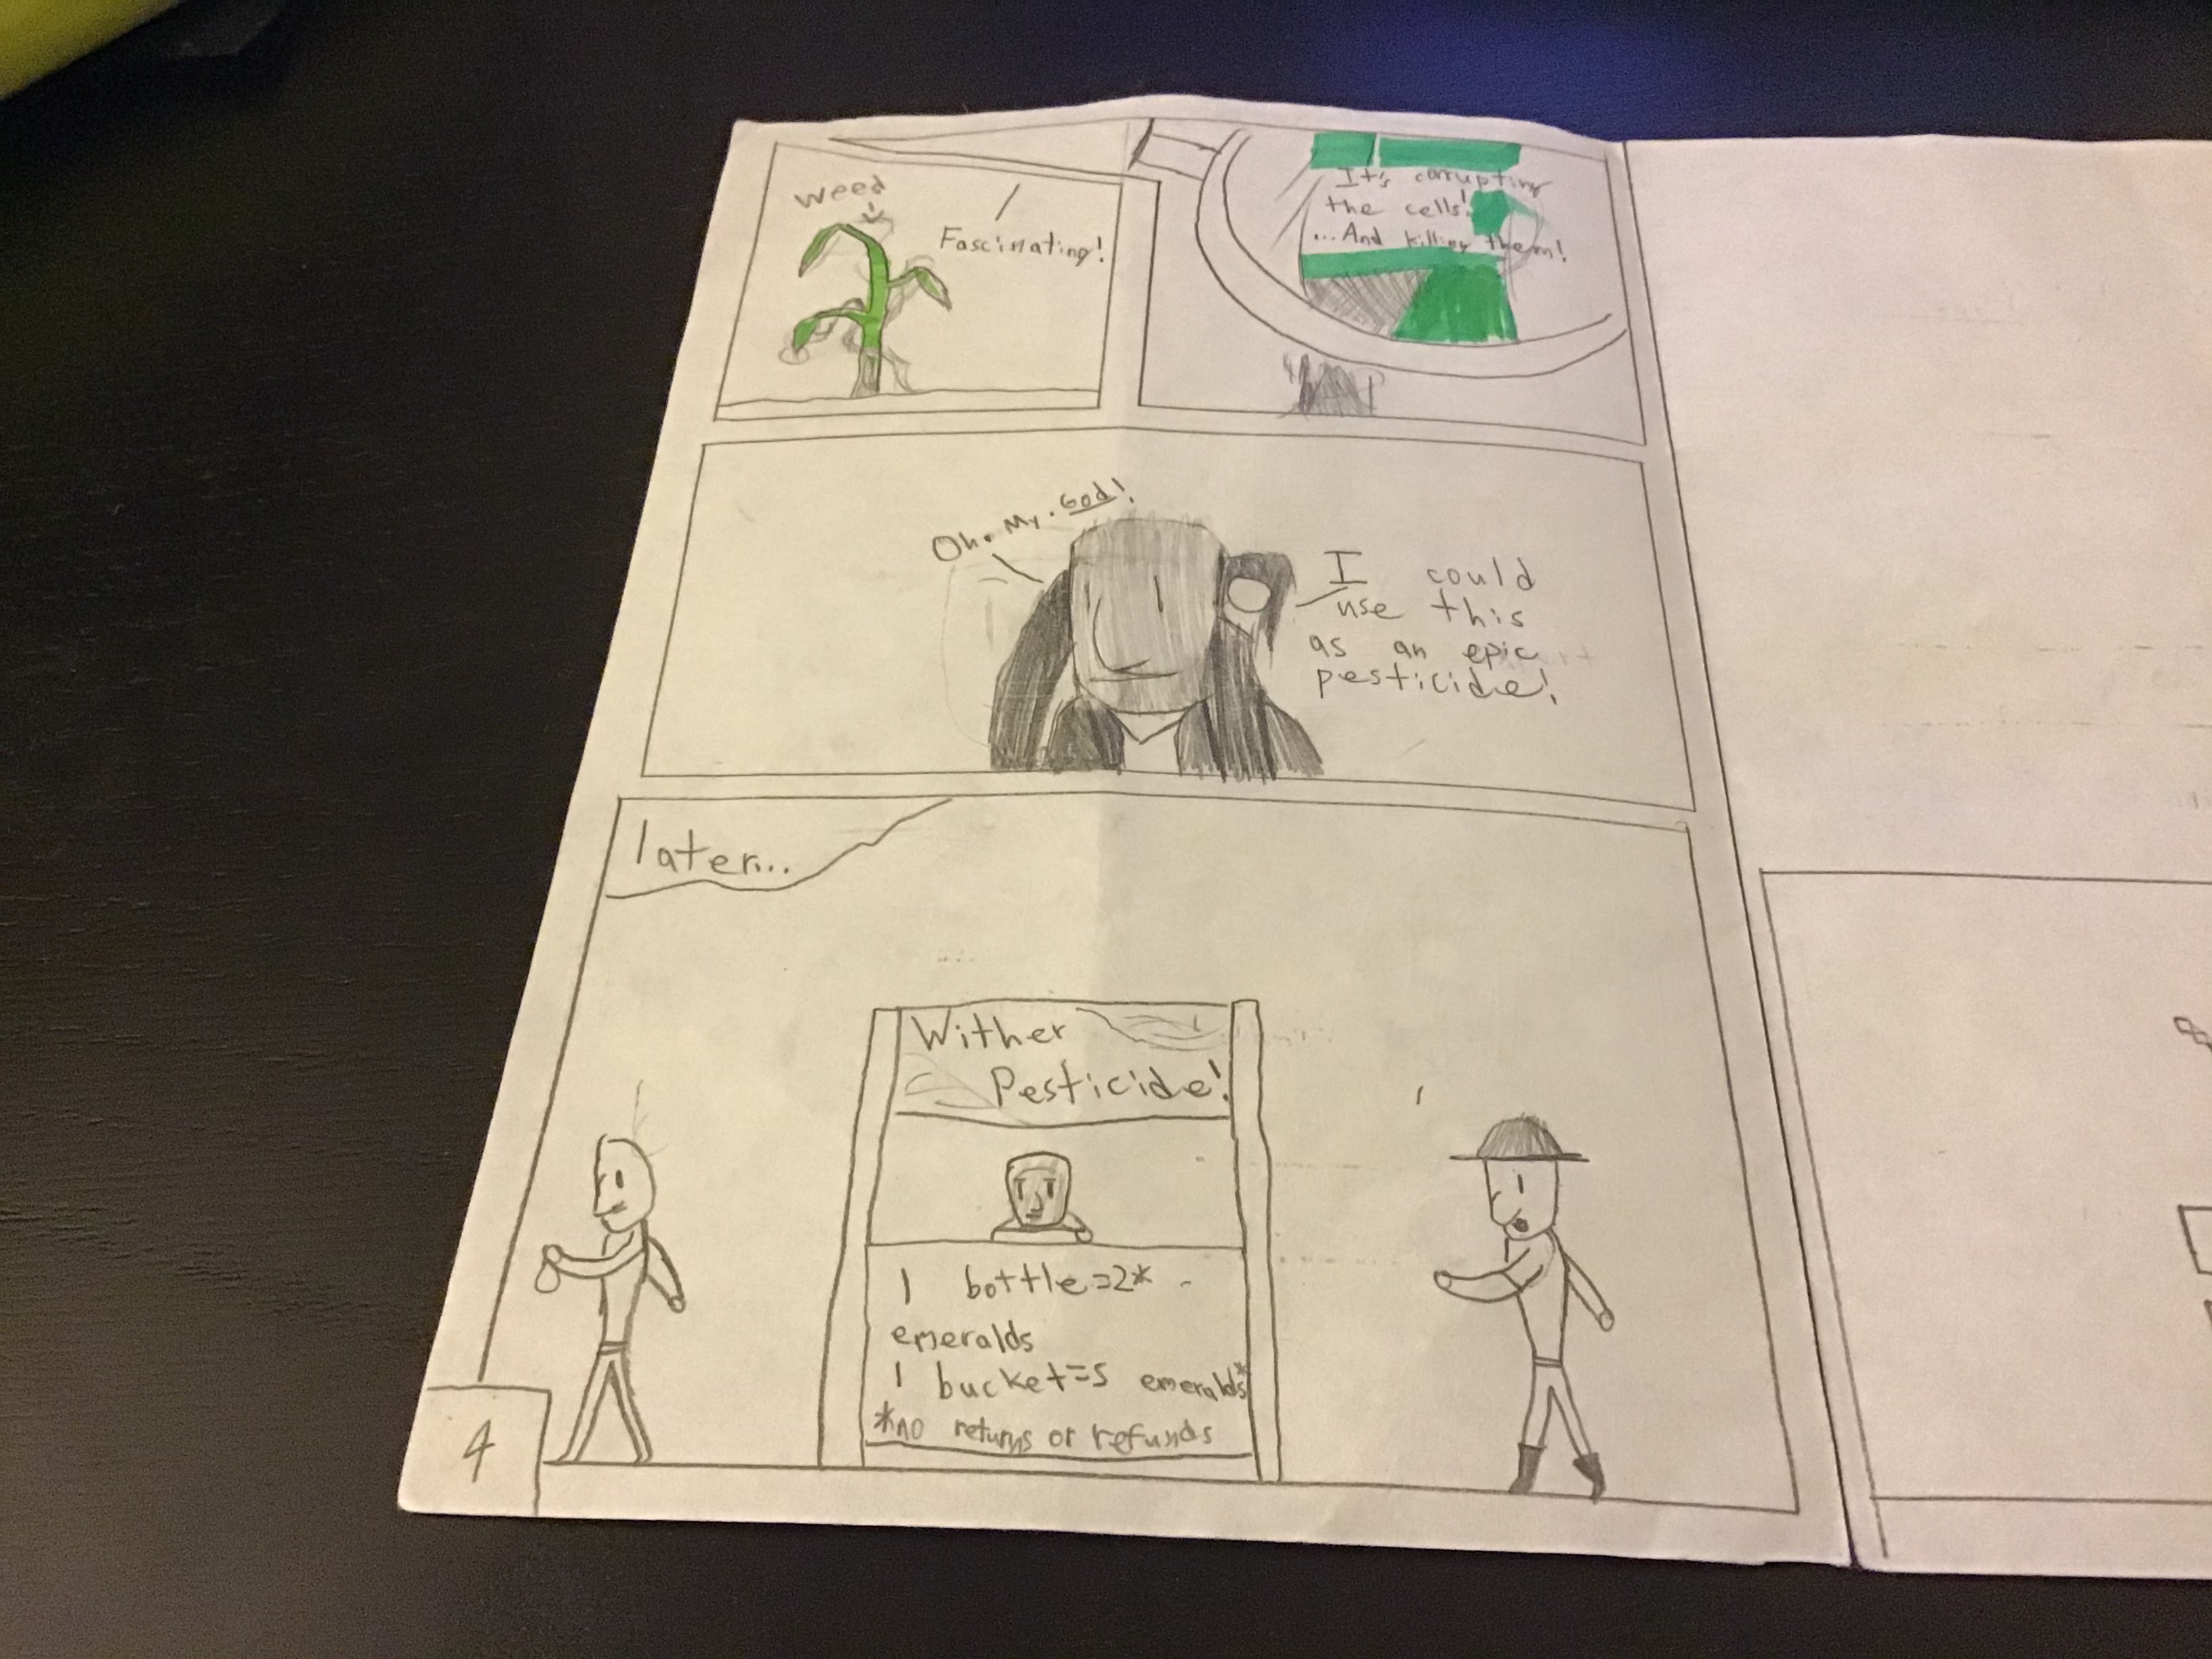 weed
Fascinating!
It's corrupting
the cells!
...And killing them!
Oh. My. God!
I could
use this
as an epic
pesticide!
later...
Wither
Pesticide!
1 bottle=2*
emeralds
1 bucket=5 emeralds*
*no returns or refunds
4